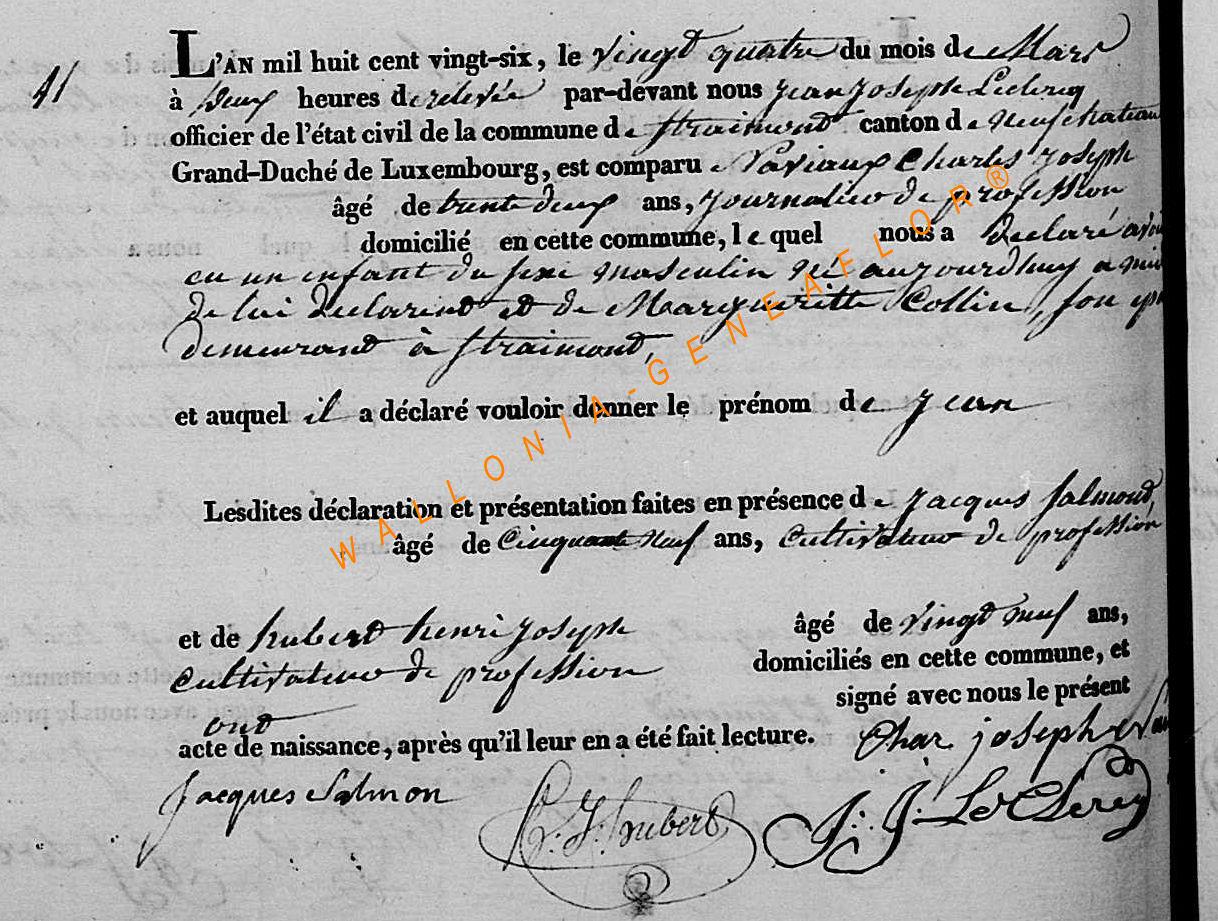 11
L'AN mil huit cent vingt-six, le vingt quatre du mois de Mars
à deux heures de relevée par-devant nous Jean Joseph Leclercq
officier de l'état civil de la commune de Straimont canton de Neufchateau
Grand-Duché de Luxembourg, est comparu Charles Joseph
âgé de trente deux ans, journalier de profession
domicilié en cette commune, le quel nous a declaré avoir
eu un enfant du sexe masculin né aujourdhuy a
de lui declarant et de Margueritte Collin, son
demeurant à straimont,
et auquel il a déclaré vouloir donner le prénom de Jean
Lesdites déclaration et présentation faites en présence de Jacques Salmond,
âgé de Cinquante Neuf ans, Cultivateur de profession
et de hubert henri Joseph âgé de vingt neuf ans,
Cultivateur de profession domiciliés en cette commune, et
ont signé avec nous le présent
acte de naissance, après qu'il leur en a été fait lecture. Char joseph
Jacques Salmon
h. J. hubert
J: J: Le Clercq
WALLONIA-GENEAFLOR®